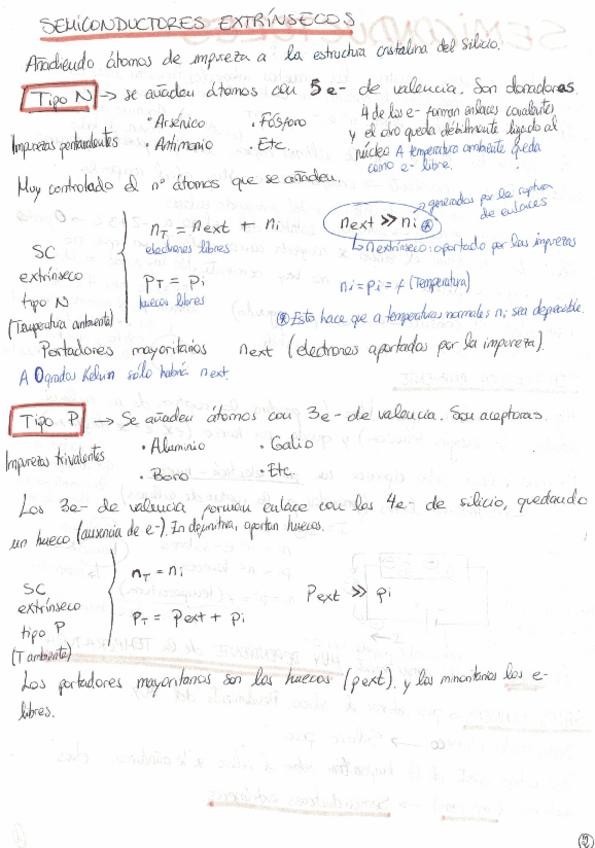 SEMICONDUCTORES EXTRÍNSECOS
Añadiendo átomos de impureza a la estructura cristalina del Silicio.
Tipo N → se añaden átomos con 5 e- de valencia. Son donadoras.
Impurezas pentavalentes
· Arsénico · Fósforo
· Antimonio · Etc.
4 de los e- forman enlaces covalentes
y el otro queda débilmente ligado al
núcleo A temperatura ambiente queda
como e- libre.
Muy controlado el nº átomos que se añaden.
SC
extrínseco
tipo N
(Temperatura ambiente)
nT = next + ni
electrones libres
pT = pi
huecos libres
next >> ni ⊛
generados por la ruptura
de enlaces
↳ nextrínseco: aportado por las impurezas
ni = pi = f (Temperatura)
⊛ Esto hace que a temperaturas normales ni sea depreciable.
Portadores mayoritarios next (electrones aportados por la impureza).
A 0 grados Kelvin sólo habría next.
Tipo P → Se añaden átomos con 3e- de valencia. Son aceptoras.
Impurezas trivalentes
· Aluminio · Galio
· Boro · Etc.
Los 3e- de valencia forman enlace con los 4e- de silicio, quedando
un hueco (ausencia de e-). En definitiva, aportan huecos.
SC
extrínseco
tipo P
(T ambiente)
nT = ni
PT = Pext + pi
Pext >> pi
Los portadores mayoritarios son los huecos (pext), y los minoritarios los e-
libres.
2